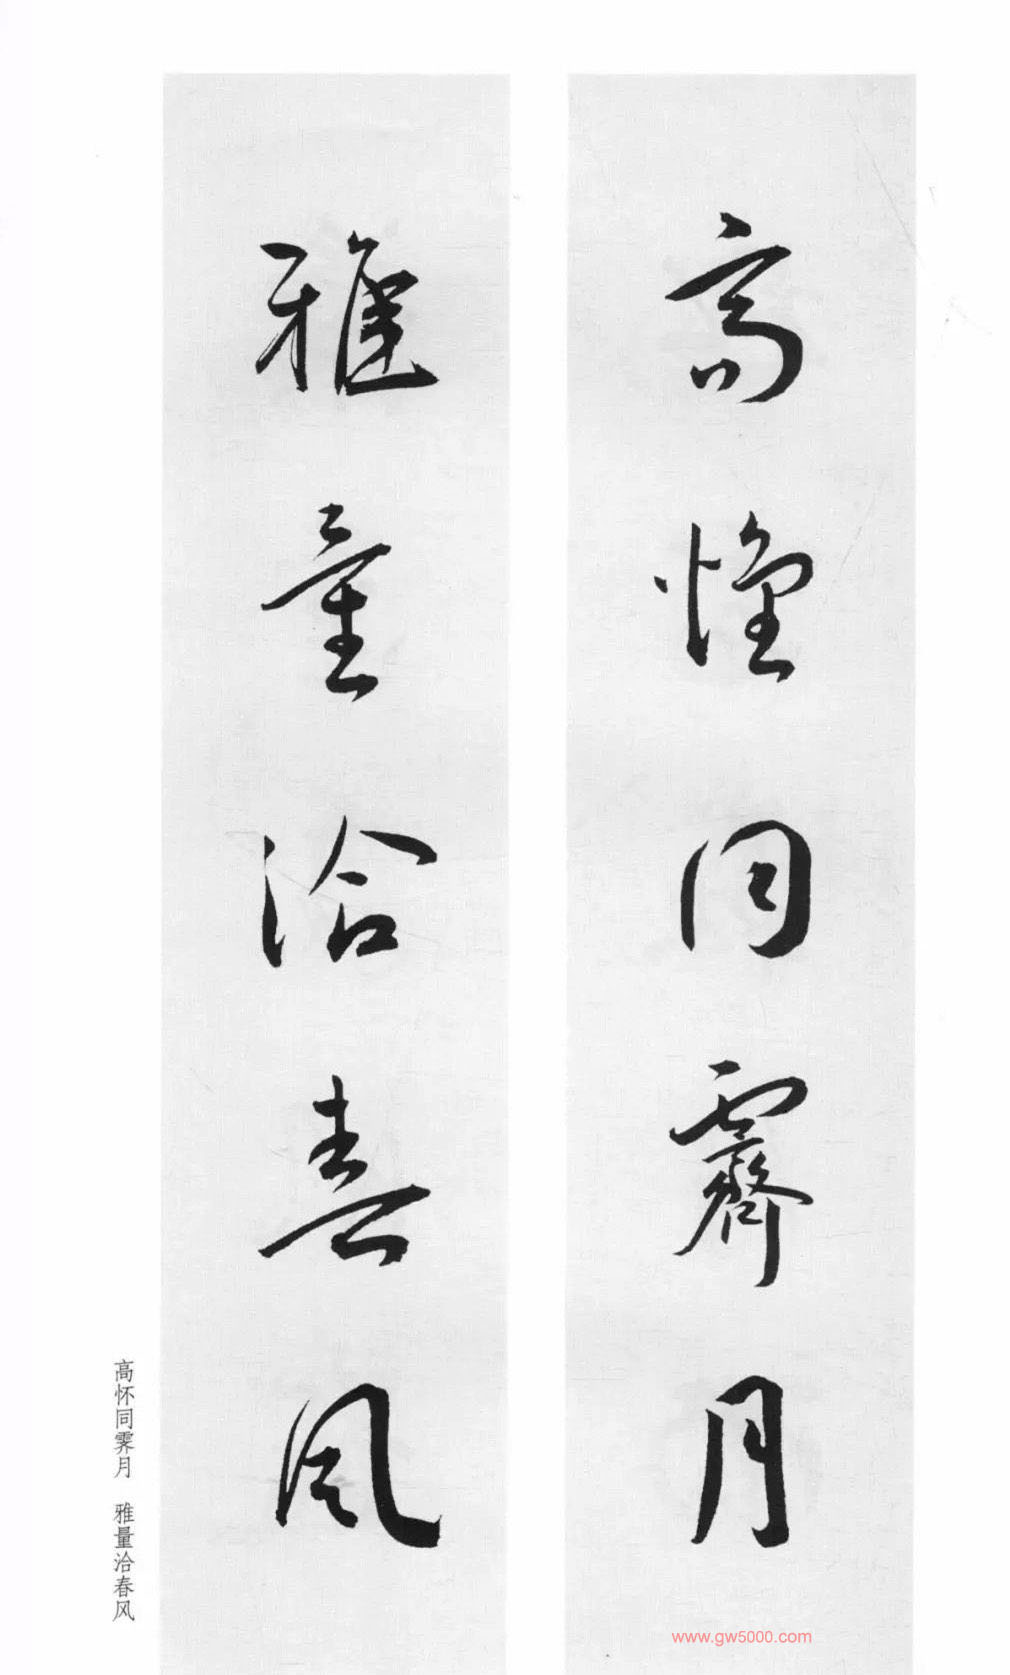 高懷同霽月
雅量洽春風
高怀同霁月 雅量洽春风
www.gw5000.com